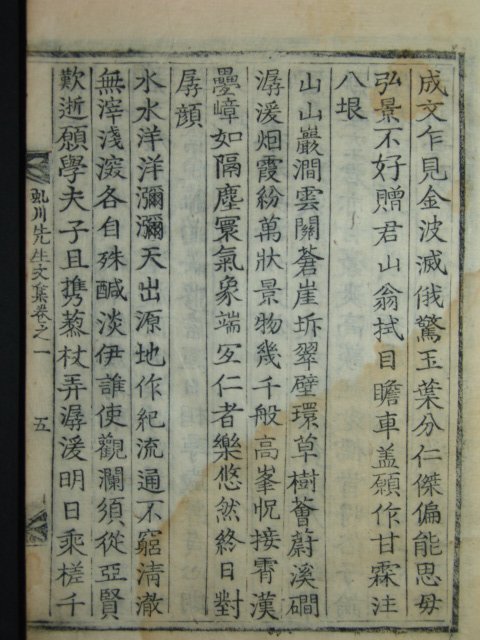 成文乍見金波滅俄驚玉葉分仁傑偏能思毋
弘景不好贈君山翁拭目瞻車盖願作甘霖注
八垠
山山巖澗雲關蒼崖坼翠壁環草樹薈蔚溪磵
潺湲烟霞紛萬狀景物幾千般高峯怳接霄漢
疊嶂如隔塵寰氣象端冝仁者樂悠然終日對
孱顔
水水洋洋瀰瀰天出源地作紀流通不窮清澈
無滓淺深各自殊鹹淡伊誰使觀瀾須從亞賢
歎逝願學夫子且携藜杖弄潺湲明日乘槎千
虬川先生文集卷之一 五